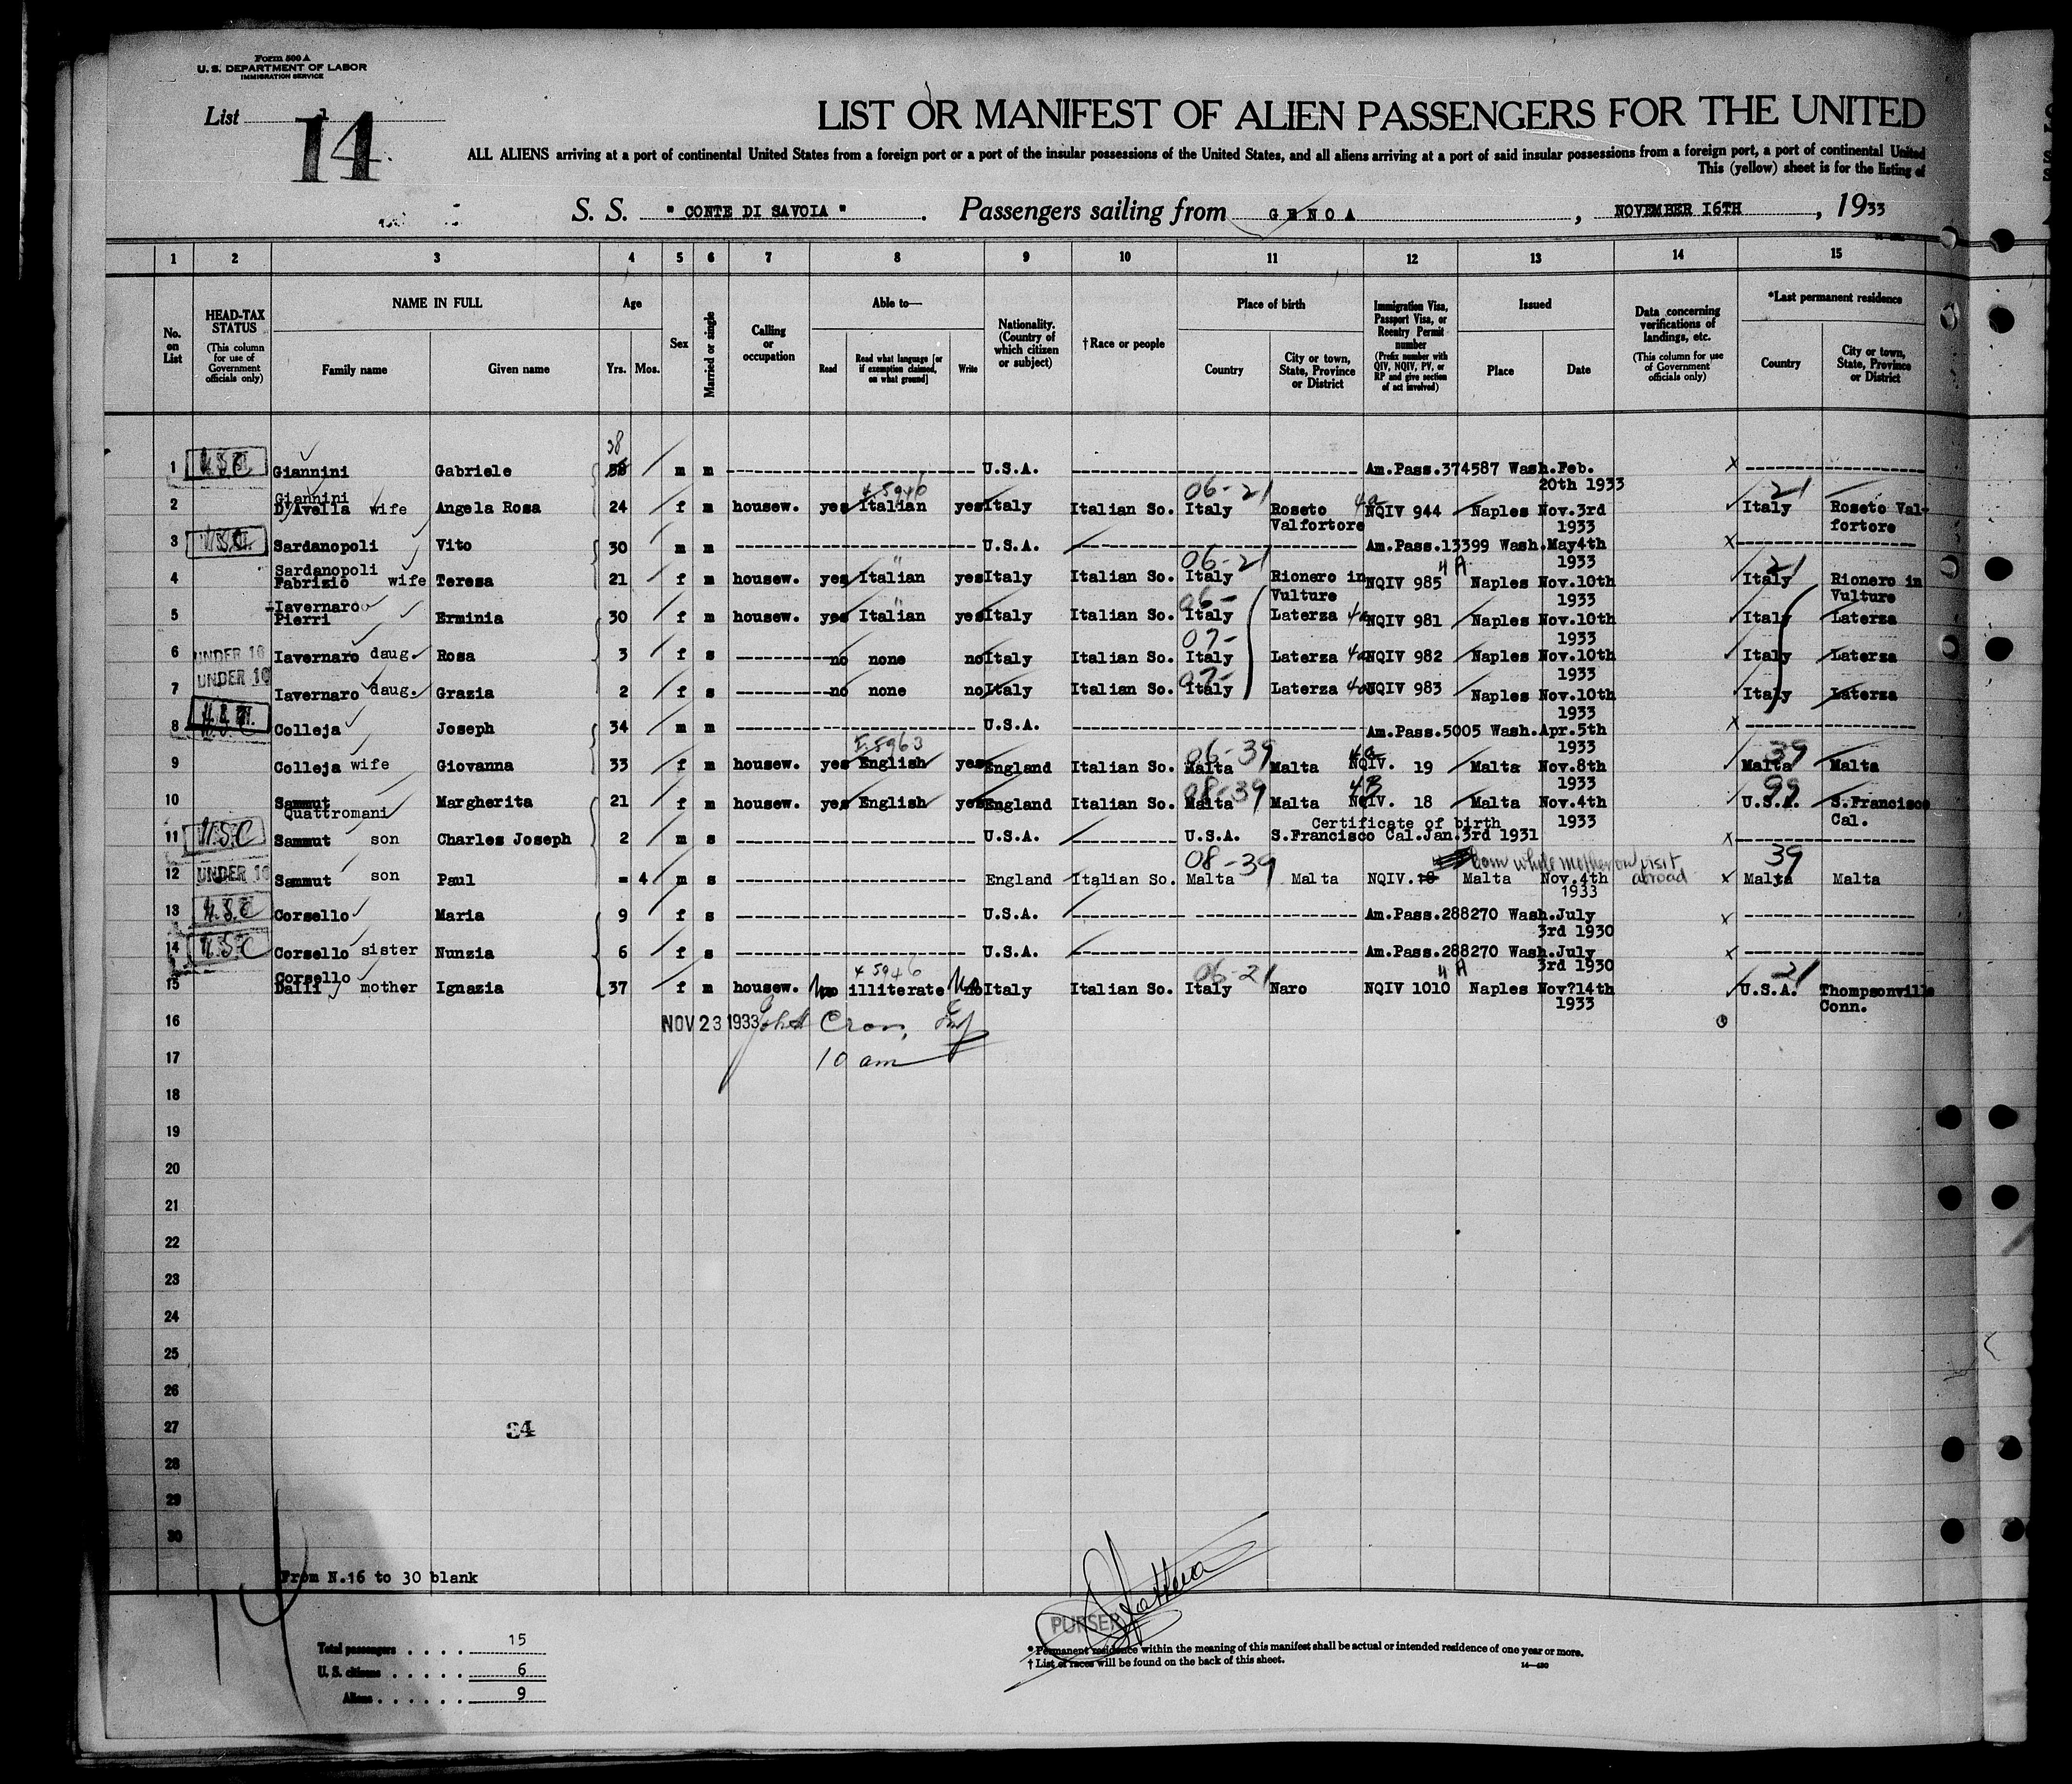 Form 500 A
U. S. DEPARTMENT OF LABOR
IMMIGRATION SERVICE
List 14
LIST OR MANIFEST OF ALIEN PASSENGERS FOR THE UNITED
ALL ALIENS arriving at a port of continental United States from a foreign port or a port of the insular possessions of the United States, and all aliens arriving at a port of said insular possessions from a foreign port, a port of continental United
This (yellow) sheet is for the listing of
S. S. " CONTE DI SAVOIA " . Passengers sailing from GENOA , NOVEMBER 16TH , 1933
1 2 3 4 5 6 7 8 9 10 11 12 13 14 15
No. on List
HEAD-TAX STATUS
(This column for use of Government officials only)
NAME IN FULL
Family name
Given name
Age
Yrs.
Mos.
Sex
Married or single
Calling or occupation
Able to—
Read
Read what language [or if exemption claimed, on what ground]
Write
Nationality. (Country of which citizen or subject)
†Race or people
Place of birth
Country
City or town, State, Province or District
Immigration Visa, Passport Visa, or Reentry Permit number
(Prefix number with QIV, NQIV, PV, or RP and give section of act involved)
Issued
Place
Date
Data concerning verifications of landings, etc.
(This column for use of Government officials only)
*Last permanent residence
Country
City or town, State, Province or District
38
1 U.S.C. Giannini Gabriele m m U.S.A. Am.Pass.374587 Wash.Feb. x
20th 1933
Giannini 4 5946 06-21 4a 21
2 D'Avella wife Angela Rosa 24 f m housew. yes Italian yes Italy Italian So. Italy Roseto NQIV 944 Naples Nov.3rd Italy Roseto Val-
Valfortore 1933 fortore
3 U.S.C. Sardanopoli Vito 30 m m U.S.A. Am.Pass.13399 Wash.May4th x
Sardanopoli " 06-21 4A 1933 21
4 Fabrizio wife Teresa 21 f m housew. yes Italian yes Italy Italian So. Italy Rionero in NQIV 985 Naples Nov.10th Italy Rionero in
Iavernaro " 06- Vulture 1933 Vulture
5 Pierri Erminia 30 f m housew. yes Italian yes Italy Italian So. Italy Laterza 4a NQIV 981 Naples Nov.10th Italy Laterza
07- 1933
6 UNDER 16 Iavernaro daug. Rosa 3 f s no none no Italy Italian So. Italy Laterza 4a NQIV 982 Naples Nov.10th Italy Laterza
UNDER 16 07- 1933
7 Iavernaro daug. Grazia 2 f s no none no Italy Italian So. Italy Laterza 4a NQIV 983 Naples Nov.10th Italy Laterza
1933
8 Colleja Joseph 34 m m U.S.A. Am.Pass.5005 Wash.Apr.5th x
5963 06-39 4a 1933 39
9 Colleja wife Giovanna 33 f m housew. yes English yes England Italian So. Malta Malta NQIV. 19 Malta Nov.8th Malta Malta
08-39 4B 1933 99
10 Sammut Margherita 21 f m housew. yes English yes England Italian So. Malta Malta NQIV. 18 Malta Nov.4th U.S.A. S.Francisco
Quattromani Certificate of birth 1933 Cal.
11 U.S.C Sammut son Charles Joseph 2 m s U.S.A. U.S.A. S.Francisco Cal.Jan.3rd 1931 x
08-39 born while mother on visit 39
12 UNDER 16 Sammut son Paul - 4 m s England Italian So. Malta Malta NQIV. 18 Malta Nov.4th abroad x Malta Malta
1933
13 U.S.C Corsello Maria 9 f s U.S.A. Am.Pass.288270 Wash.July x
3rd 1930
14 U.S.C Corsello sister Nunzia 6 f s U.S.A. Am.Pass.288270 Wash.July x
Corsello 4 5946 06-21 4A 3rd 1930 21
15 Dalli mother Ignazia 37 f m housew. no illiterate no Italy Italian So. Italy Naro NQIV 1010 Naples Nov?14th U.S.A. Thompsonville
1933 Conn.
16 NOV 23 1933
17 10 am
18
19
20
21
22
23
24
25
26
27 34
28
29
30
From N.16 to 30 blank
14
PURSER
Total passengers . . . . 15
U. S. citizens . . . . . 6
Aliens . . . . . . 9
* Permanent residence within the meaning of this manifest shall be actual or intended residence of one year or more.
† List of races will be found on the back of this sheet.
14—430